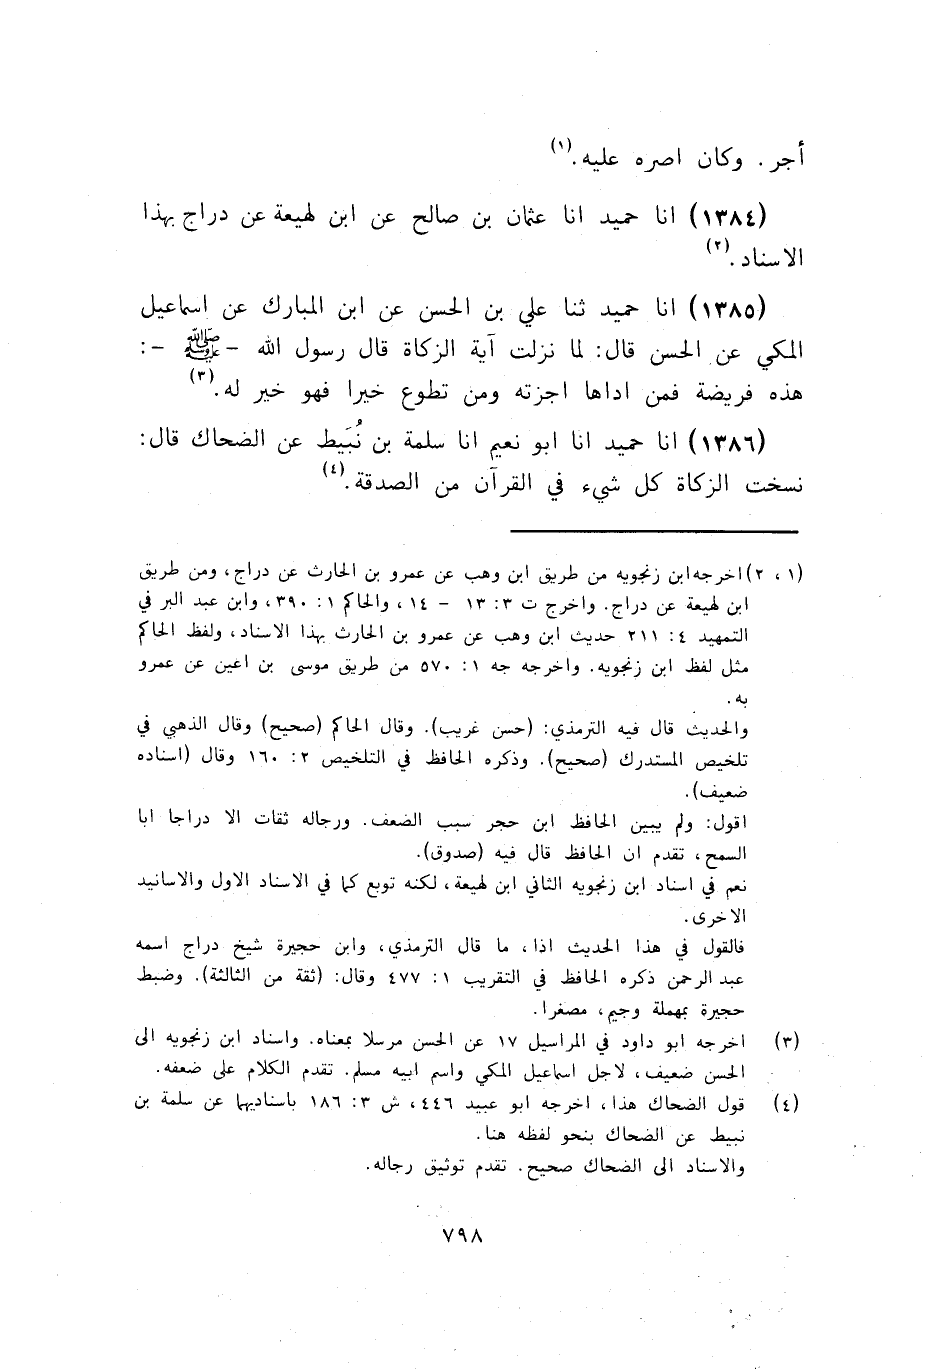 أجر. وكان اصره عليه.(١)
(١٣٨٤) انا حميد انا عثمان بن صالح عن ابن لهيعة عن دراج بهذا
الاسناد.(٢)
(١٣٨٥) انا حميد ثنا علي بن الحسن عن ابن المبارك عن اسماعيل
المكي عن الحسن قال: لما نزلت آية الزكاة قال رسول الله - ﷺ -:
هذه فريضة فمن اداها اجزته ومن تطوع خيرا فهو خير له.(٣)
(١٣٨٦) انا حميد انا ابو نعيم انا سلمة بن نُبَيط عن الضحاك قال:
نسخت الزكاة كل شيء في القرآن من الصدقة.(٤)
(١ ، ٢) اخرجه ابن زنجويه من طريق ابن وهب عن عمرو بن الحارث عن دراج، ومن طريق
ابن لهيعة عن دراج. واخرج ت ٣: ١٣ - ١٤، والحاكم ١: ٣٩٠، وابن عبد البر في
التمهيد ٤: ٢١١ حديث ابن وهب عن عمرو بن الحارث بهذا الاسناد، ولفظ الحاكم
مثل لفظ ابن زنجويه. واخرجه جه ١: ٥٧٠ من طريق موسى بن اعين عن عمرو
به.
والحديث قال فيه الترمذي: (حسن غريب). وقال الحاكم (صحيح) وقال الذهبي في
تلخيص المستدرك (صحيح). وذكره الحافظ في التلخيص ٢: ١٦٠ وقال (اسناده
ضعيف).
اقول: ولم يبين الحافظ ابن حجر سبب الضعف. ورجاله ثقات الا دراجا ابا
السمح، تقدم ان الحافظ قال فيه (صدوق).
نعم في اسناد ابن زنجويه الثاني ابن لهيعة، لكنه توبع كما في الاسناد الاول والاسانيد
الاخرى.
فالقول في هذا الحديث اذا، ما قال الترمذي، وابن حجيرة شيخ دراج اسمه
عبد الرحمن ذكره الحافظ في التقريب ١: ٤٧٧ وقال: (ثقة من الثالثة). وضبط
حجيرة بمهملة وجيم، مصغرا.
(٣) اخرجه ابو داود في المراسيل ١٧ عن الحسن مرسلا بمعناه. واسناد ابن زنجويه الى
الحسن ضعيف، لاجل اسماعيل المكي واسم ابيه مسلم. تقدم الكلام على ضعفه.
(٤) قول الضحاك هذا، اخرجه ابو عبيد ٤٤٦، ش ٣: ١٨٦ باسناديهما عن سلمة بن
نبيط عن الضحاك بنحو لفظه هنا.
والاسناد الى الضحاك صحيح. تقدم توثيق رجاله.
٧٩٨